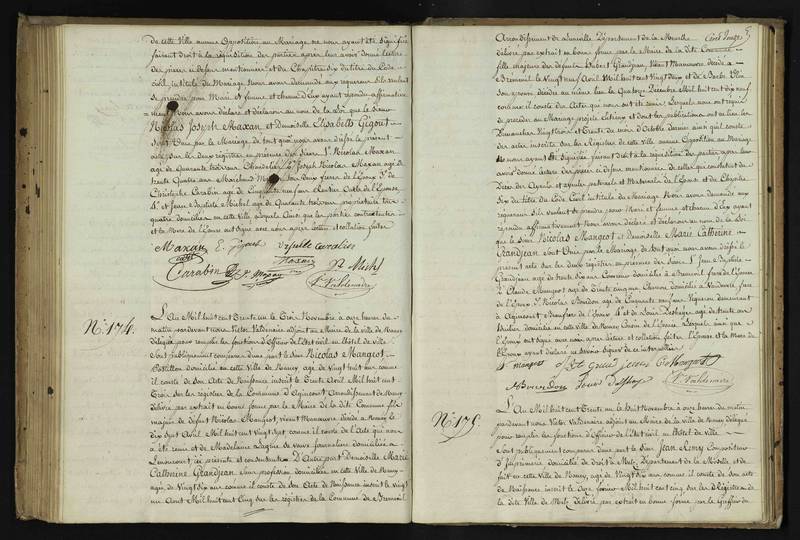 de cette Ville aucune Opposition au Mariage ne nous ayant été signifiée
faisant droit à la réquisition des parties après leur avoir donné lecture
des pièces ci dessus mentionnées et du Chapitre Six du titre du Code
civil intitulé du Mariage avons demandé aux requérans s'ils veulent
se prendre pour Mari et femme et chacun d'Eux ayant répondu affirmative-
ment Nous avons déclaré et déclarons au nom de la Loi que le Sieur
Nicolas Joseph Maxan et Demoiselle Elisabeth Gigout
sont Unis par le Mariage de tout quoi nous avons dressé le présent
acte sur les deux registres en présence des Sieurs 1° Nicolas Maxan
agé de Quarante Chandelier 2° Joseph Nicolas Maxan agé de
trente Quatre ans Marchand tous deux frères de l'Epoux 3° de
Christophe Carabin agé de Cinquante ans Rentier Oncle de l'Epouse
4° et Jean Baptiste Michel agé de Quarante ans propriétaire
domiciliés en cette Ville, lesquels ainsi que les parties contractantes
et la Mère de l'Epoux ont signé avec nous après lecture et collation faites
Maxan E. Gigout
Carabin Maxan Michel
V. Valdenaire
N° 174.
L'An Mil huit cent Trente un le Trois Novembre à onze heures du
matin pardevant nous Victor Valdenaire adjoint au Maire de la ville de Nancy
délégué pour remplir les fonctions d'Officier de l'Etat civil en l'hôtel de Ville
Sont publiquement comparus d'une part le Sieur Nicolas Mangeot
Postillon domicilié en cette Ville de Nancy agé de Vingt huit ans comme
il conste de son Acte de Naissance inscrit le Trente Avril Mil huit cent
Trois Sur les registres de la Commune d'Agincourt Arrondissement de Nancy
délivré par extrait en bonne forme par le Maire de la dite Commune fils
majeur de défunt Nicolas Mangeot, vivant Manœuvre décédé à Nancy le
Dix Sept Avril Mil huit cent Vingt Sept comme il conste de l'Acte qui nous
a été remis et de Madelaine sa veuve journalière domiciliée à
Lenoncourt, ici présente et consentante D'Autre part Demoiselle Marie
Catherine Grandjean Sans profession domiciliée en cette Ville de Nancy
agée de Vingt Six ans comme il conste de son Acte de Naissance inscrit le Vingt
un Aout Mil huit cent Cinq sur les registres de la Commune de Brémenil
Arrondissement de Lunéville Département de la Meurthe
délivré par extrait en bonne forme par le Maire de la dite Commune
fille majeure des défunts Hubert Grandjean Vivant Manœuvre décédé à
Brémenil le Vingt neuf Avril Mil huit cent Vingt Deux et de Barbe
Son épouse décédée au même lieu le Quatorze Décembre Mil huit cent dix neuf
comme il conste des Actes qui nous ont été remis. Lesquels nous ont requis
de procéder au Mariage projeté Entre eux et dont les publications ont eu lieu les
Dimanches Vingt trois et Trente du mois d'Octobre dernier ainsi qu'il conste
des actes inscrits sur les registres de cette Ville aucune Opposition au Mariage
ne nous ayant été signifiée faisant droit à la réquisition des parties après leur
avoir donné lecture des pièces ci dessus mentionnées de celles qui constatent le
Décès des Ayeuls et ayeules paternels et Maternels de l'Epouse et du Chapitre
Six du titre du Code Civil intitulé du Mariage Nous avons demandé aux
requérans s'ils veulent se prendre pour Mari et femme et chacun d'Eux ayant
répondu affirmativement Nous avons déclaré et déclarons au nom de la Loi
que le Sieur Nicolas Mangeot et demoiselle Marie Catherine
Grandjean sont Unis par le Mariage de tout quoi nous avons dressé le
présent acte sur les deux registres en présence des Sieurs 1° Jean Baptiste
Grandjean agé de trente six ans domicilié à Brémenil frère de l'Epouse
2° Claude Mangeot agé de Trente cinq ans Charron domicilié à Vandœuvre frère
de l'Epoux 3° Nicolas Bourdon agé de Cinquante ans Vigneron demeurant
à Agincourt de l'Epoux 4° et de Louis agé de trente ans
domicilié en cette ville de Nancy Cousin de l'Epouse. Lesquels ainsi que
l'Epoux ont signé avec nous après lecture et collation faites l'Epouse et la Mère de
l'Epoux ayant déclaré ne savoir signer de ce interpellées
N. Mangeot J Bte Grandjean C Mangeot
N Bourdon Louis
V. Valdenaire
N° 175.
L'An Mil huit cent Trente un le Huit Novembre à onze heures du matin
pardevant nous Victor Valdenaire adjoint au Maire de la ville de Nancy délégué
pour remplir les fonctions d'Officier de l'Etat civil en l'hôtel de Ville
Sont publiquement comparus d'une part le Sieur Jean Remy Compositeur
d'Imprimerie domicilié de droit à Metz Département de la Moselle et de
fait en cette Ville de Nancy, agé de Vingt Six ans comme il conste de son acte
de Naissance inscrit le Mil huit cent cinq sur les Registres de
la dite Ville de Metz délivré par extrait en bonne forme par le Greffier du